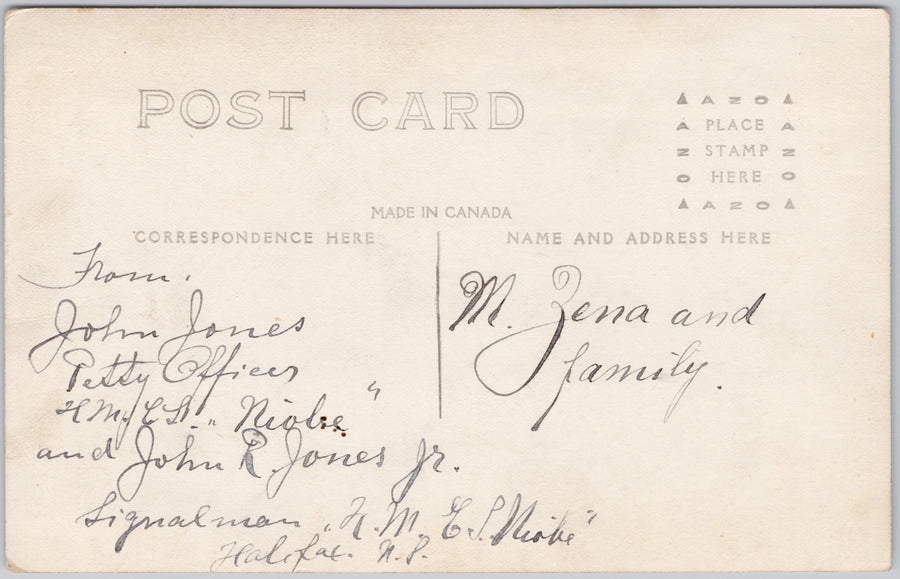 POST CARD
▲ A Z O ▲
A PLACE A
Z STAMP Z
O HERE O
▲ A Z O ▲
MADE IN CANADA
CORRESPONDENCE HERE
NAME AND ADDRESS HERE
From.
John Jones
Petty Officer
H.M.C.S. "Niobe"
and John R. Jones Jr.
Signalman, H.M.C.S. "Niobe"
Halifax. N.S.
M. Zena and
family.